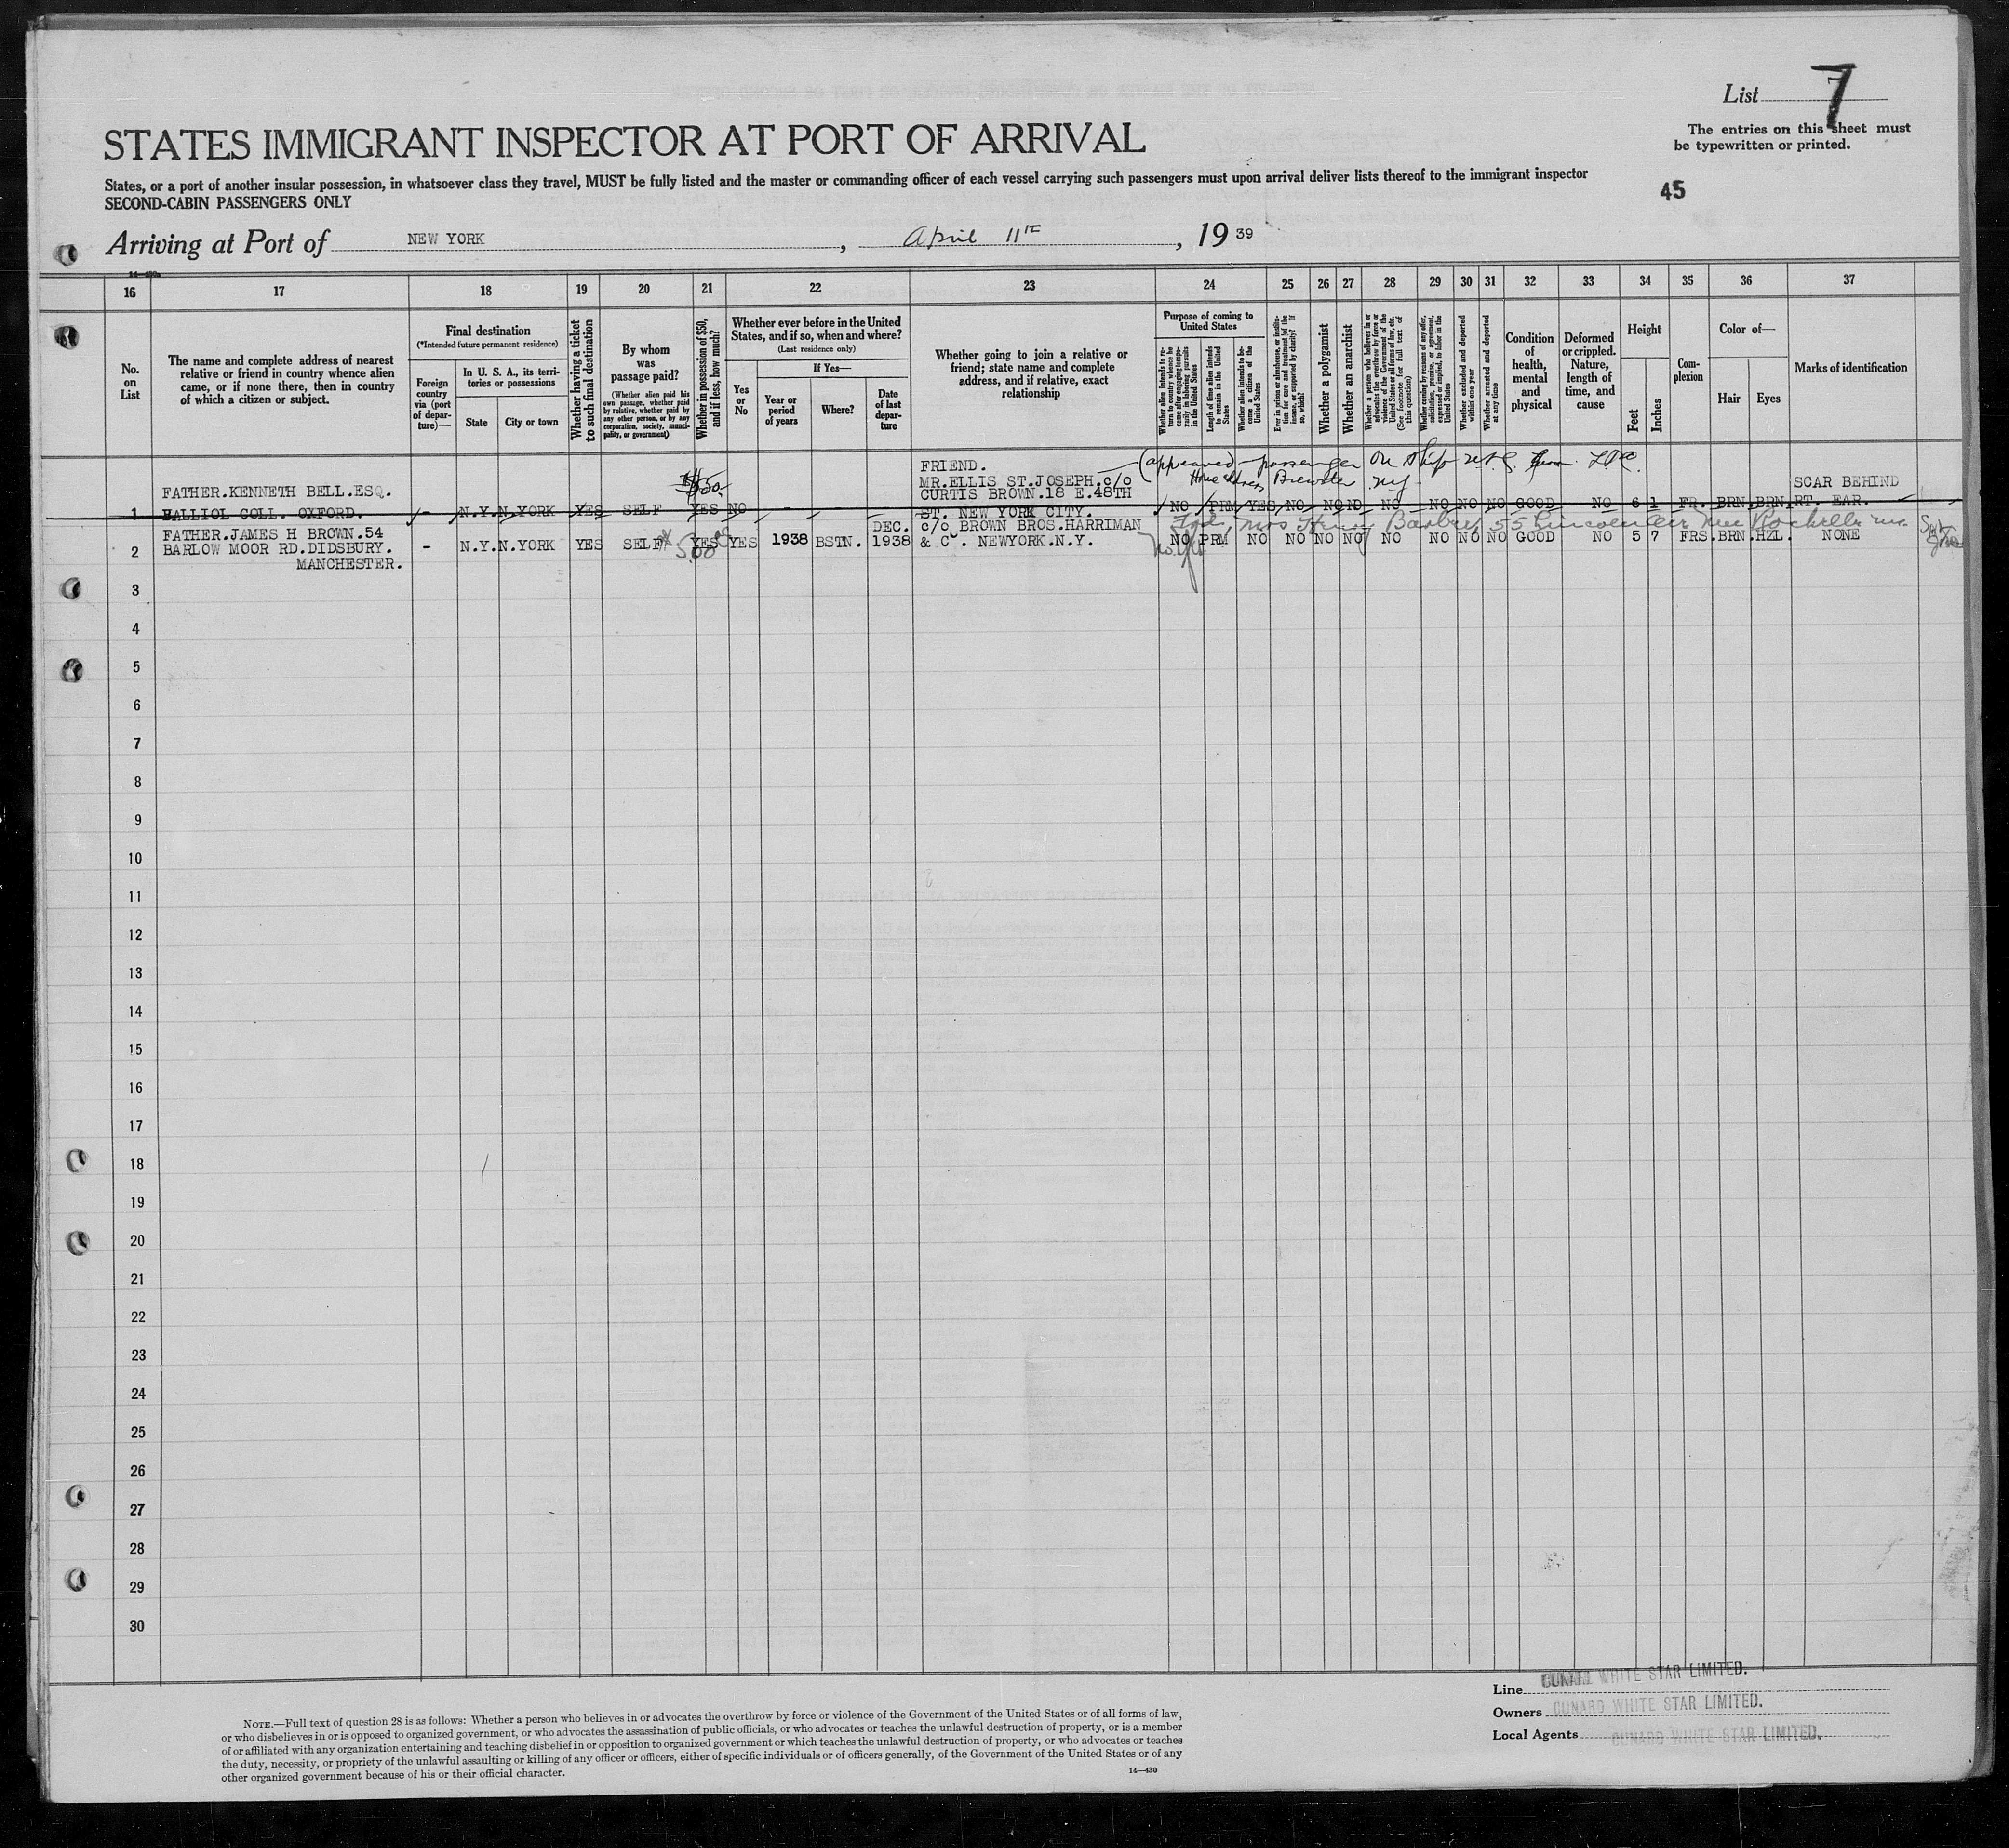 List 7
The entries on this sheet must
be typewritten or printed.
STATES IMMIGRANT INSPECTOR AT PORT OF ARRIVAL
States, or a port of another insular possession, in whatsoever class they travel, MUST be fully listed and the master or commanding officer of each vessel carrying such passengers must upon arrival deliver lists thereof to the immigrant inspector
SECOND-CABIN PASSENGERS ONLY
45
Arriving at Port of NEW YORK, April 11th, 19 39
16 17 18 19 20 21 22 23 24 25 26 27 28 29 30 31 32 33 34 35 36 37
No. on List
The name and complete address of nearest
relative or friend in country whence alien
came, or if none there, then in country
of which a citizen or subject.
Final destination
(*Intended future permanent residence)
Foreign country via (port of departure)—
In U. S. A., its territories or possessions
State
City or town
Whether having a ticket to such final destination
By whom was passage paid?
(Whether alien paid his own passage, whether paid by relative, whether paid by any other person, or by any corporation, society, municipality, or government)
Whether in possession of $50, and if less, how much?
Whether ever before in the United States, and if so, when and where?
(Last residence only)
Yes or No
If Yes—
Year or period of years
Where?
Date of last departure
Whether going to join a relative or
friend; state name and complete
address, and if relative, exact
relationship
Purpose of coming to United States
Whether alien intends to return to country whence he came after engaging temporarily in laboring pursuits in the United States
Length of time alien intends to remain in the United States
Whether alien intends to become a citizen of the United States
Ever in prison or almshouse, or institution for care and treatment of the insane, or supported by charity? If so, which?
Whether a polygamist
Whether an anarchist
Whether a person who believes in or advocates the overthrow by force or violence of the Government of the United States or all forms of law, etc. (See footnote for full text of this question)
Whether coming by reasons of any offer, solicitation, promise, or agreement, expressed or implied, to labor in the United States
Whether excluded and deported within one year
Whether arrested and deported at any time
Condition of health, mental and physical
Deformed or crippled. Nature, length of time, and cause
Height
Feet
Inches
Complexion
Color of—
Hair
Eyes
Marks of identification
FRIEND. (appeared passenger on ship
FATHER.KENNETH BELL.ESQ. $50. MR.ELLIS ST.JOSEPH.c/o Home address Brewster N.Y. SCAR BEHIND
CURTIS BROWN.18 E.48TH
1 BALLIOL COLL. OXFORD. - N.Y. N.YORK YES SELF YES NO - - - ST. NEW YORK CITY. NO PRM YES NO NO NO NO NO NO NO GOOD NO 6 1 FR. BRN. BRN. RT. EAR.
FATHER.JAMES H BROWN.54 DEC. c/o BROWN BROS.HARRIMAN Mrs Henry 55 Lincoln Ave New Rochelle
2 BARLOW MOOR RD.DIDSBURY. - N.Y. N.YORK YES SELF 500 YES YES 1938 BSTN. 1938 & Co. NEWYORK.N.Y. NO PRM NO NO NO NO NO NO NO NO GOOD NO 5 7 FRS. BRN. HZL. NONE
MANCHESTER.
3
4
5
6
7
8
9
10
11
12
13
14
15
16
17
18
19
20
21
22
23
24
25
26
27
28
29
30
Line CUNARD WHITE STAR LIMITED.
Owners CUNARD WHITE STAR LIMITED.
Local Agents CUNARD WHITE STAR LIMITED.
NOTE.—Full text of question 28 is as follows: Whether a person who believes in or advocates the overthrow by force or violence of the Government of the United States or of all forms of law,
or who disbelieves in or is opposed to organized government, or who advocates the assassination of public officials, or who advocates or teaches the unlawful destruction of property, or is a member
of or affiliated with any organization entertaining and teaching disbelief in or opposition to organized government or which teaches the unlawful destruction of property, or who advocates or teaches
the duty, necessity, or propriety of the unlawful assaulting or killing of any officer or officers, either of specific individuals or of officers generally, of the Government of the United States or of any
other organized government because of his or their official character.
14—430